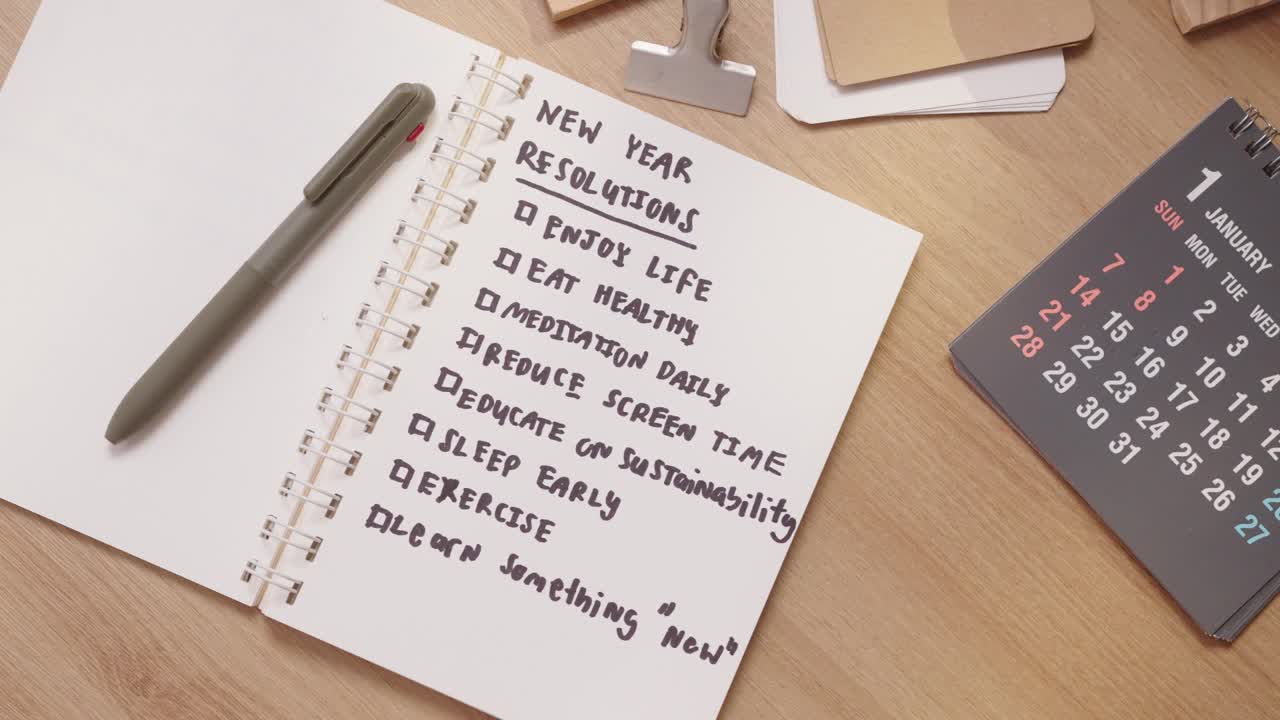 NEW YEAR
RESOLUTIONS
ENJOY LIFE
EAT HEALTHY
MEDITATION DAILY
REDUCE SCREEN TIME
EDUCATE ON SUSTAINABILITY
SLEEP EARLY
EXERCISE
LEARN Something "New"
1 JANUARY
SUN MON TUE WED
1 2 3 4
7 8 9 10 11
14 15 16 17 18 19
21 22 23 24 25 26 27
28 29 30 31